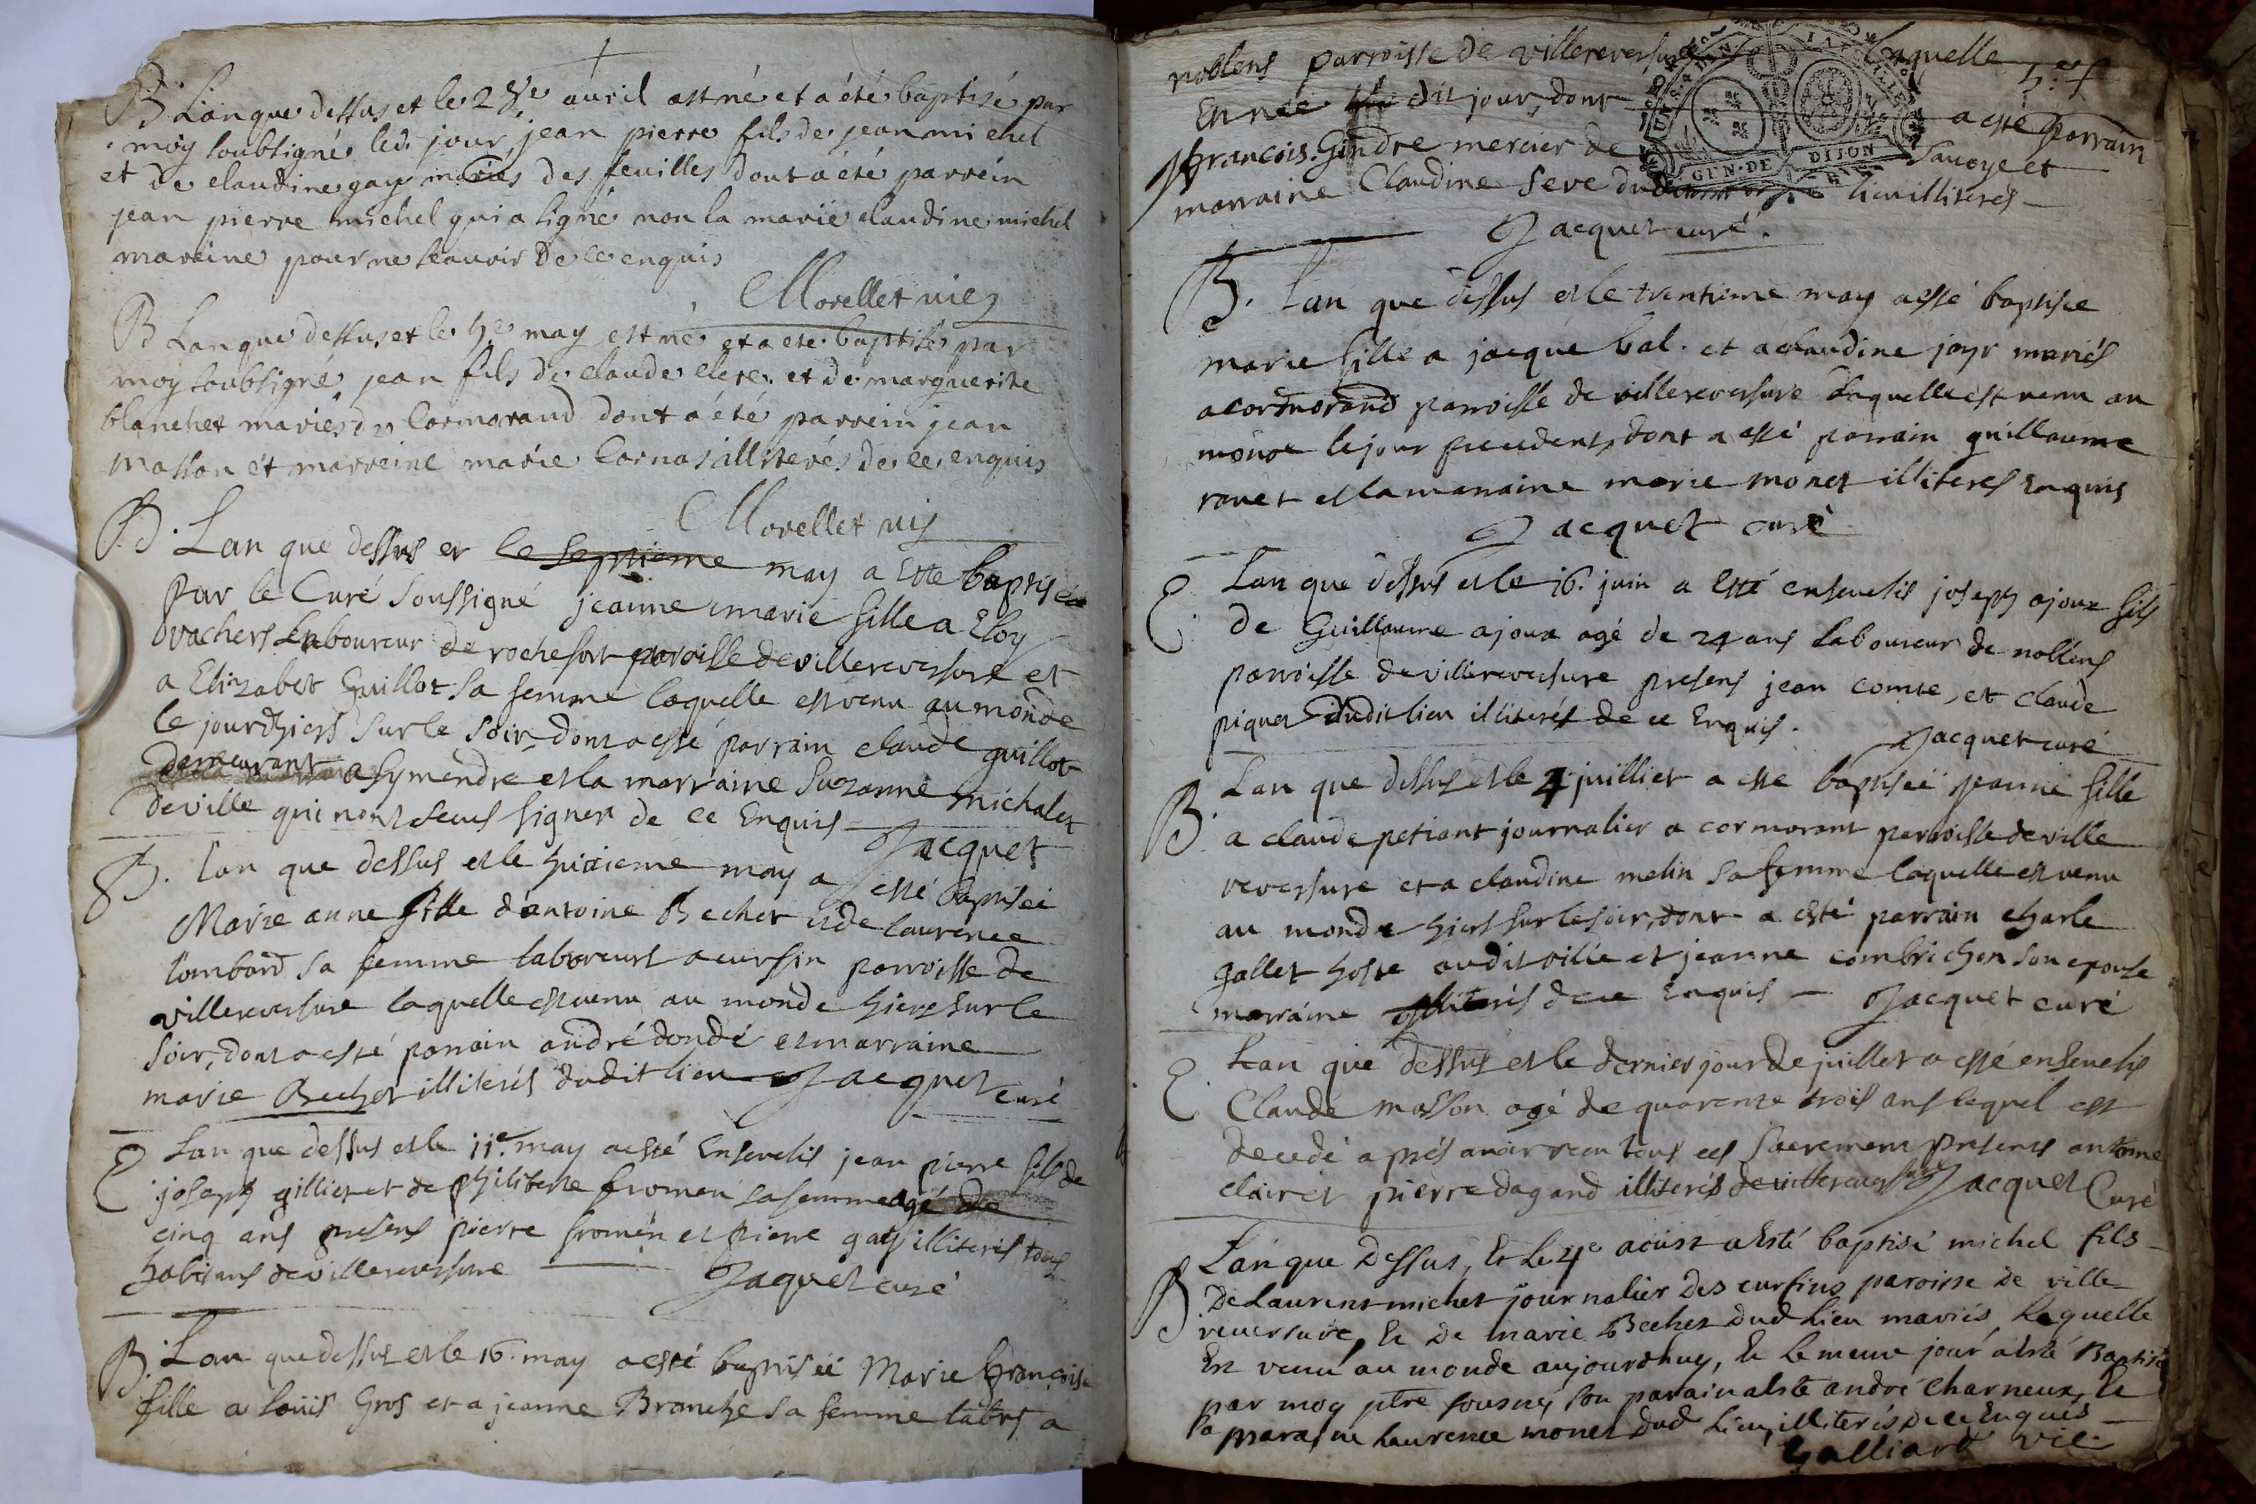 B Lan que dessus et le 28e avril est né et a été baptisé par
moy soubsigné led. jour, jean pierre fils de jean michel
et de claudine gay mariés des feuilles dont a été parrein
jean pierre michel qui a signé non la marie claudine michel
mareine pour ne sçavoir de ce enquis
Morellet vic
B Lan que dessus et le 5e may est né et a eté baptisé par
moy soubsigné jean fils de claude clere et de marguerite
blanchet mariés du Cormorand dont a été parrein jean
masson et marreine marie Cornas illiterés de ce enquis
Morellet vic
B. Lan que dessus et le septieme may a Esté baptisée
par le Curé soussigné jeanne marie fille a Eloy
vachers laboureur de rochefort paroisse de villereversure et
a Elizabet Guillot sa femme laquelle est venu au monde
le jour dhiers sur le soir, dont a esté parrain claude guillot
demeurant a Symendre et la marraine Suzanne michalet
deville qui nont sceus signer de ce Enquis
Jacquet
B. Lan que dessus et le huitieme may a esté baptiséé
Marie anne fille dantoine Bechet et de laurence
lombard sa femme laboreurs a cursin parroisse de
villereversure laquelle est venu au monde hiers sur le
soir, dont a esté parrain andré dondé et marraine
marie Bechet illiterés dudit lieu Jacquet curé
E Lan que dessus et le 11e. may a esté Ensevelis jean pierre fils de
joseph gillier et de philiberte fromen sa femme agé de
cinq ans presens pierre fromen et pierre gay illiterés tous
habitans de villereversure
Jaquet curé
B. Lan que dessus et le 16. may a esté baptiséé Marie françoise
fille a louis Gros et a jeanne Branche sa femme labrs a
noblens parroisse de villereversure laquelle
En née dit jour, dont a esté parrain
françois Gindre mercier de Savoye et
marraine Claudine Seve du lieu illiterés
GEN. DE DIJON
Jacquet curé.
B. Lan que dessus et le trentieme may a esté baptisée
marie fille a jacque bal. et a claudine jayr mariés
a cormorand parroisse de villereversure laquelle est venu au
monde le jour precedent, dont a esté parrain guillaume
ravet et la marraine marie monet illiterés Enquis
Jacquet curé
E Lan que dessus et le 16. juin a Esté ensevelis joseph ajoux fils
de Guillaume ajoux agé de 24 ans laboureur de noblens
parroisse de villereversure presens jean comte, et claude
piquet dudit lieu illiterés de ce Enquis.
Jacquet curé
B. Lan que dessus et le 4 juillier a esté baptiséé jeanne fille
a claude petiant journalier a cormorant parroisse de ville
reversure et a claudine melin sa femme laquelle est venu
au monde hiers sur le soir, dont a esté parrain charle
gallet hoste audit ville et jeanne combrichon son epouse
marraine illiterés de ce Enquis Jacquet curé
E. Lan que dessus et le dernier jour de juillet a esté ensevelis
Claude masson agé de quarente trois ans lequel est
decedé aprés avoir receu tous ces sacremens presens antoine
clair et pierre dagand illiterés de villereversure Jacquet Curé
B. Lan que Dessus, Et le 4e aoust a Esté baptisé michel fils
De Laurent michet journalier des cursins paroisse de ville
reversure, Et de marie Bechet dud lieu mariés, Laquelle
Est venu au monde aujourdhuy, Et le meme jour a été Baptisé
par moy ptre sousné, son parain a esté andré Charneux, Et
sa maraine Laurence monet dud Lieu, illiterés de ce Enquis
Galliard vic